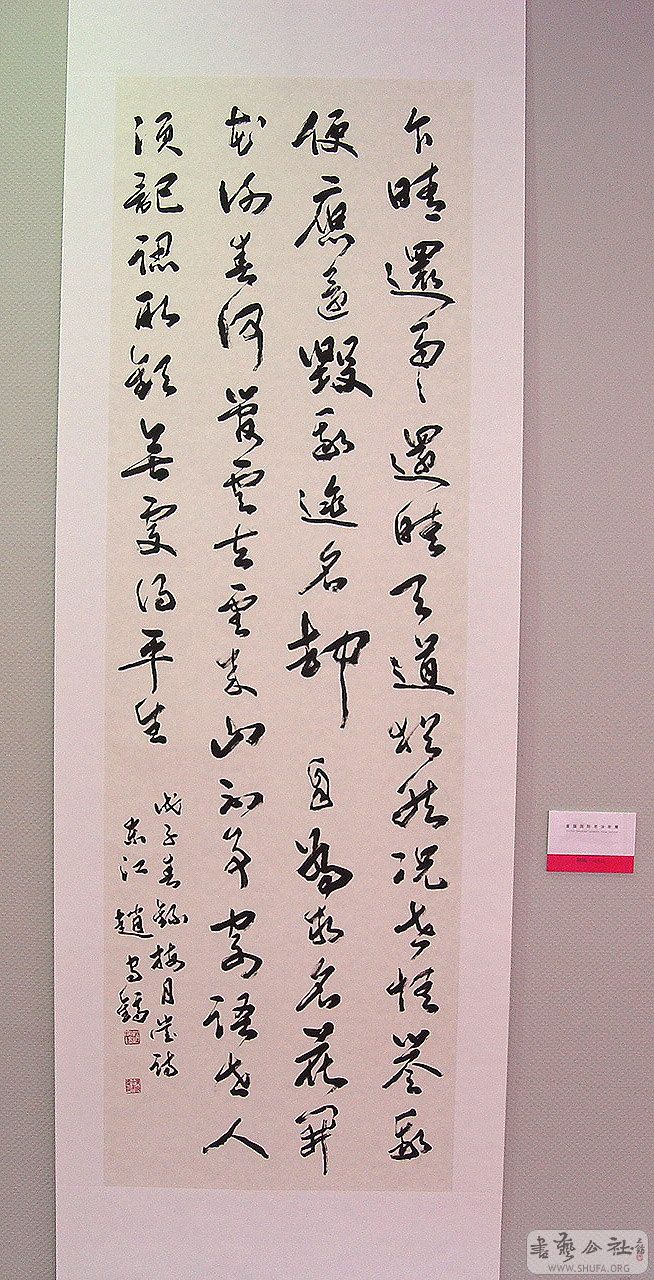 乍晴還雨〻還晴天道猶然況世情譽我
便應還毀我逃名却自為求名花開
花謝春何管雲去雲來山不爭寄語世人
須記認取歡無處得平生
戊子春錄梅月堂詩
東江趙守鎬
書藝公社
WWW.SHUFA.ORG